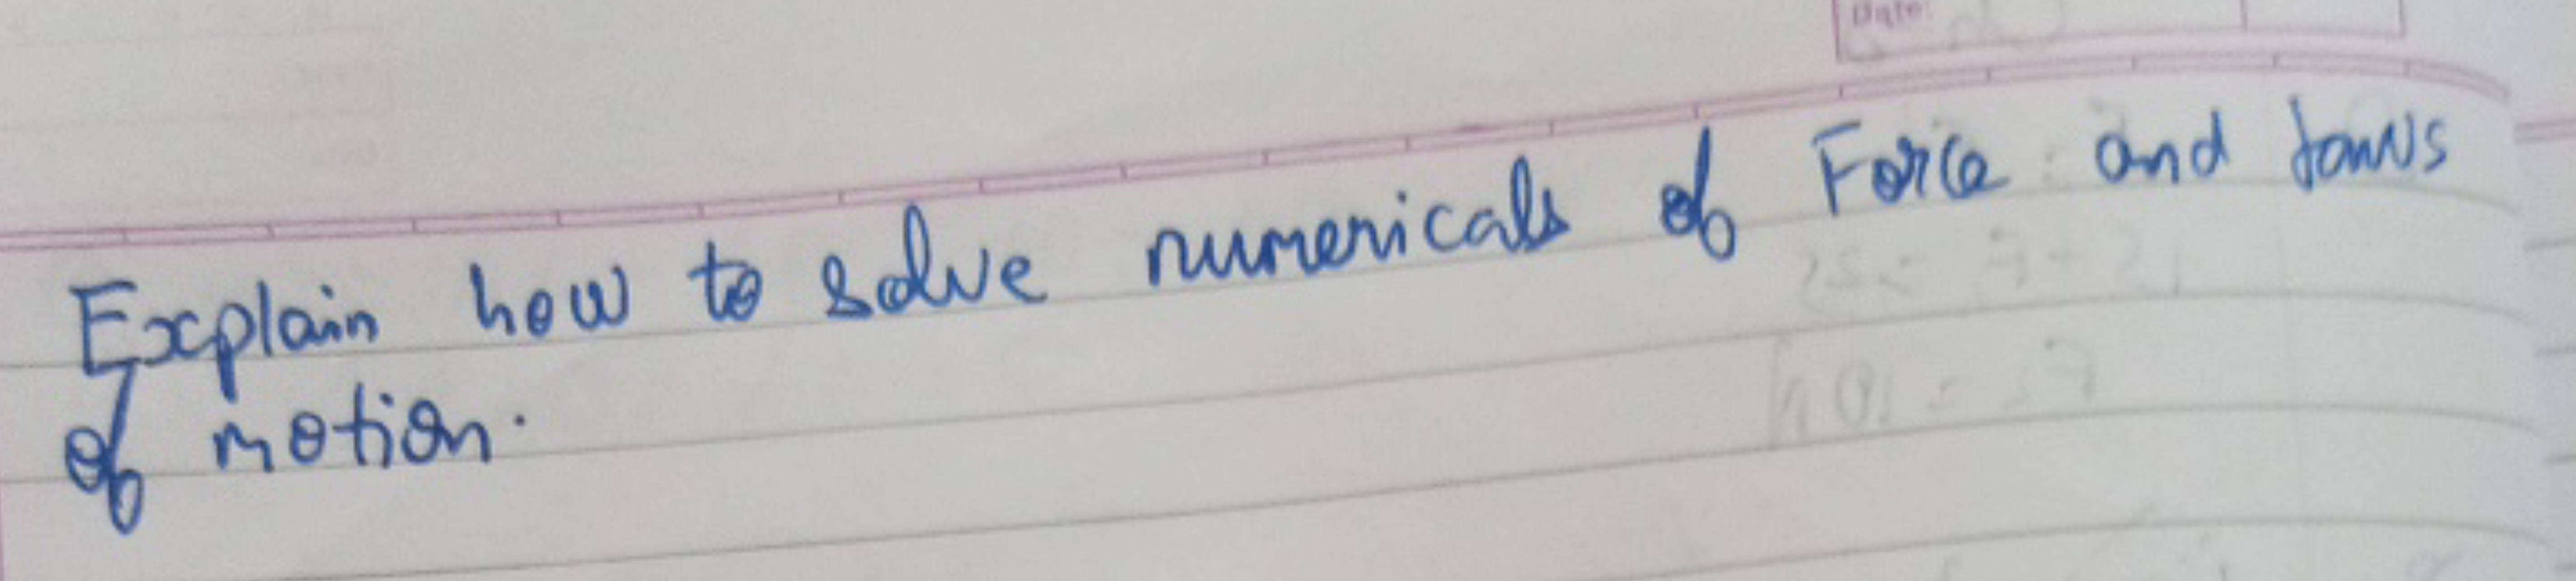 Date:
Explain how to solve numericals of Force and laws
of motion.